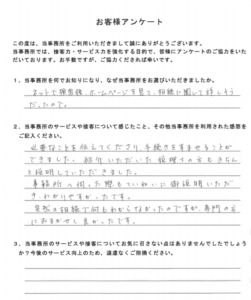 お客様アンケート
この度は、当事務所をご利用いただきまして誠にありがとうございます。
当事務所では、接客力・サービス力を強化する目的で、皆様にアンケートのご協力をいた
だいております。お手数ですが、ご協力くだされば幸いです。
1．当事務所を何でお知りになり、なぜ当事務所をお選びいただきましたか。
ネットで検索後、ホームページを見て、相続に関して詳しそう
だったので。
2．当事務所のサービスや接客について感じたこと、その他当事務所を利用された感想を
ご記入ください。
必要なことを伝えてくださり、手続きをすませることが
できました。紹介いただいた税理士の方もきちんと
説明していただきました。
事務所へ伺った際もていねいに御説明いただ
き、わかりやすかったです。
突然の相続で何もわからなかったのですが、専門の方
におまかせし良かったです。
3．当事務所のサービスや接客についてお気に召さない点はありませんでしたでしょう
か？今後のサービス向上のため、遠慮なくご指摘ください。